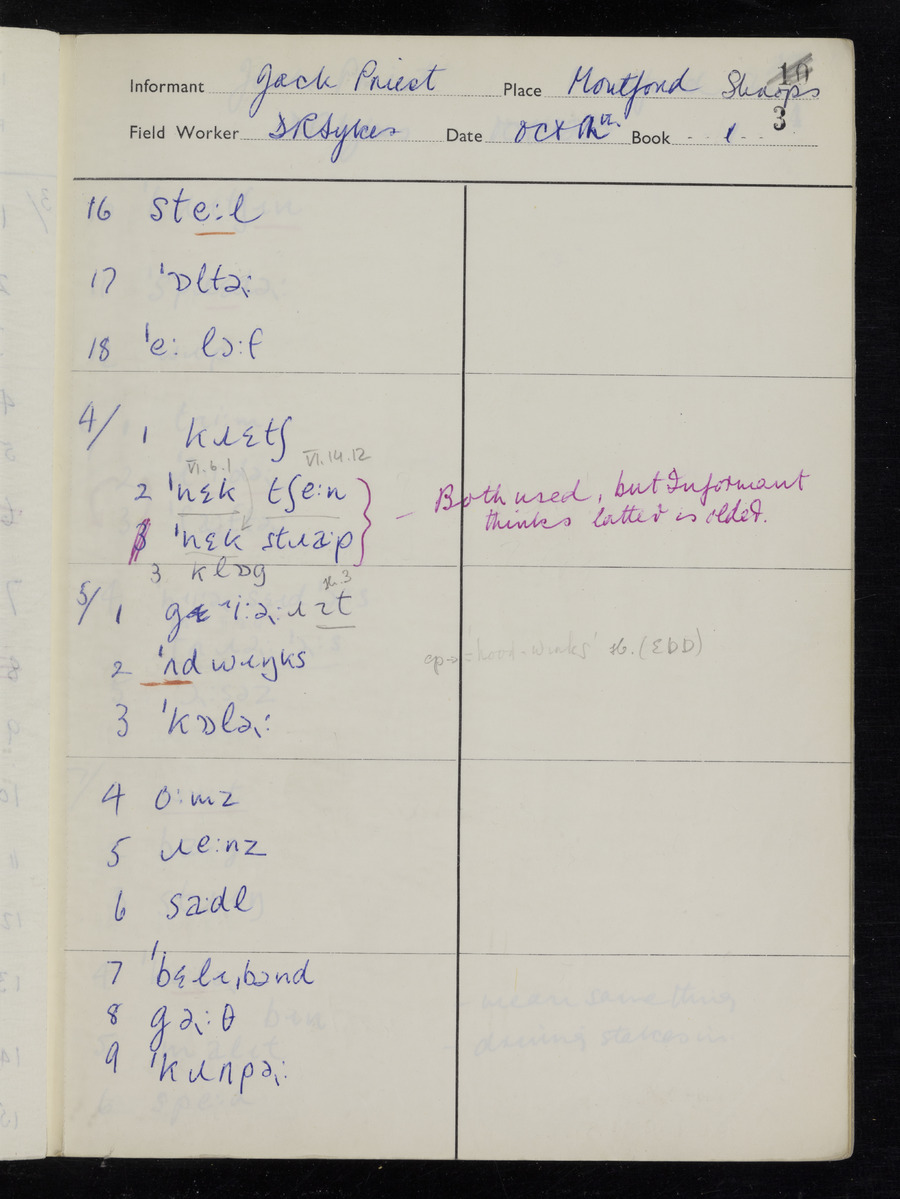 10
Informant Jack Priest Place Montford Shrops
3
Field Worker DRSykes Date OCT Book 1
16 ste:l
17 ˈɒltə˞:
18 ˈe: lɔ:f
4/ 1 kɹɛtʃ
VI.6.1 VI.14.12
2 ˈnɛk tʃe:n } — Both used, but Informant
3 ˈnɛk stɹap thinks latter is older.
3 klɒg
sb.3
5/ 1
2 ˈʌd wɪŋks cp. 'hood-winks' sb. (EDD)
3 ˈkɒlə˞:
4 o:mz
5 ɹe:nz
6 sadl
7 ˈbɛlɪˌbənd
8 gə˞:θ
9 ˈkɹʌpə˞: